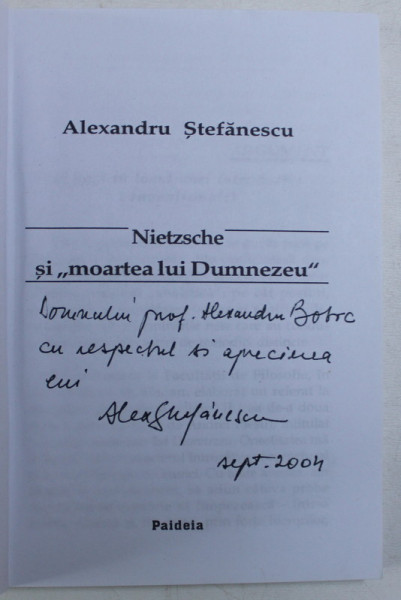 Alexandru Ștefănescu
Nietzsche
și „moartea lui Dumnezeu“
Domnului prof. Alexandru Boboc
cu respectul si aprecierea
lui
Alex Ștefănescu
sept. 2004
Paideia